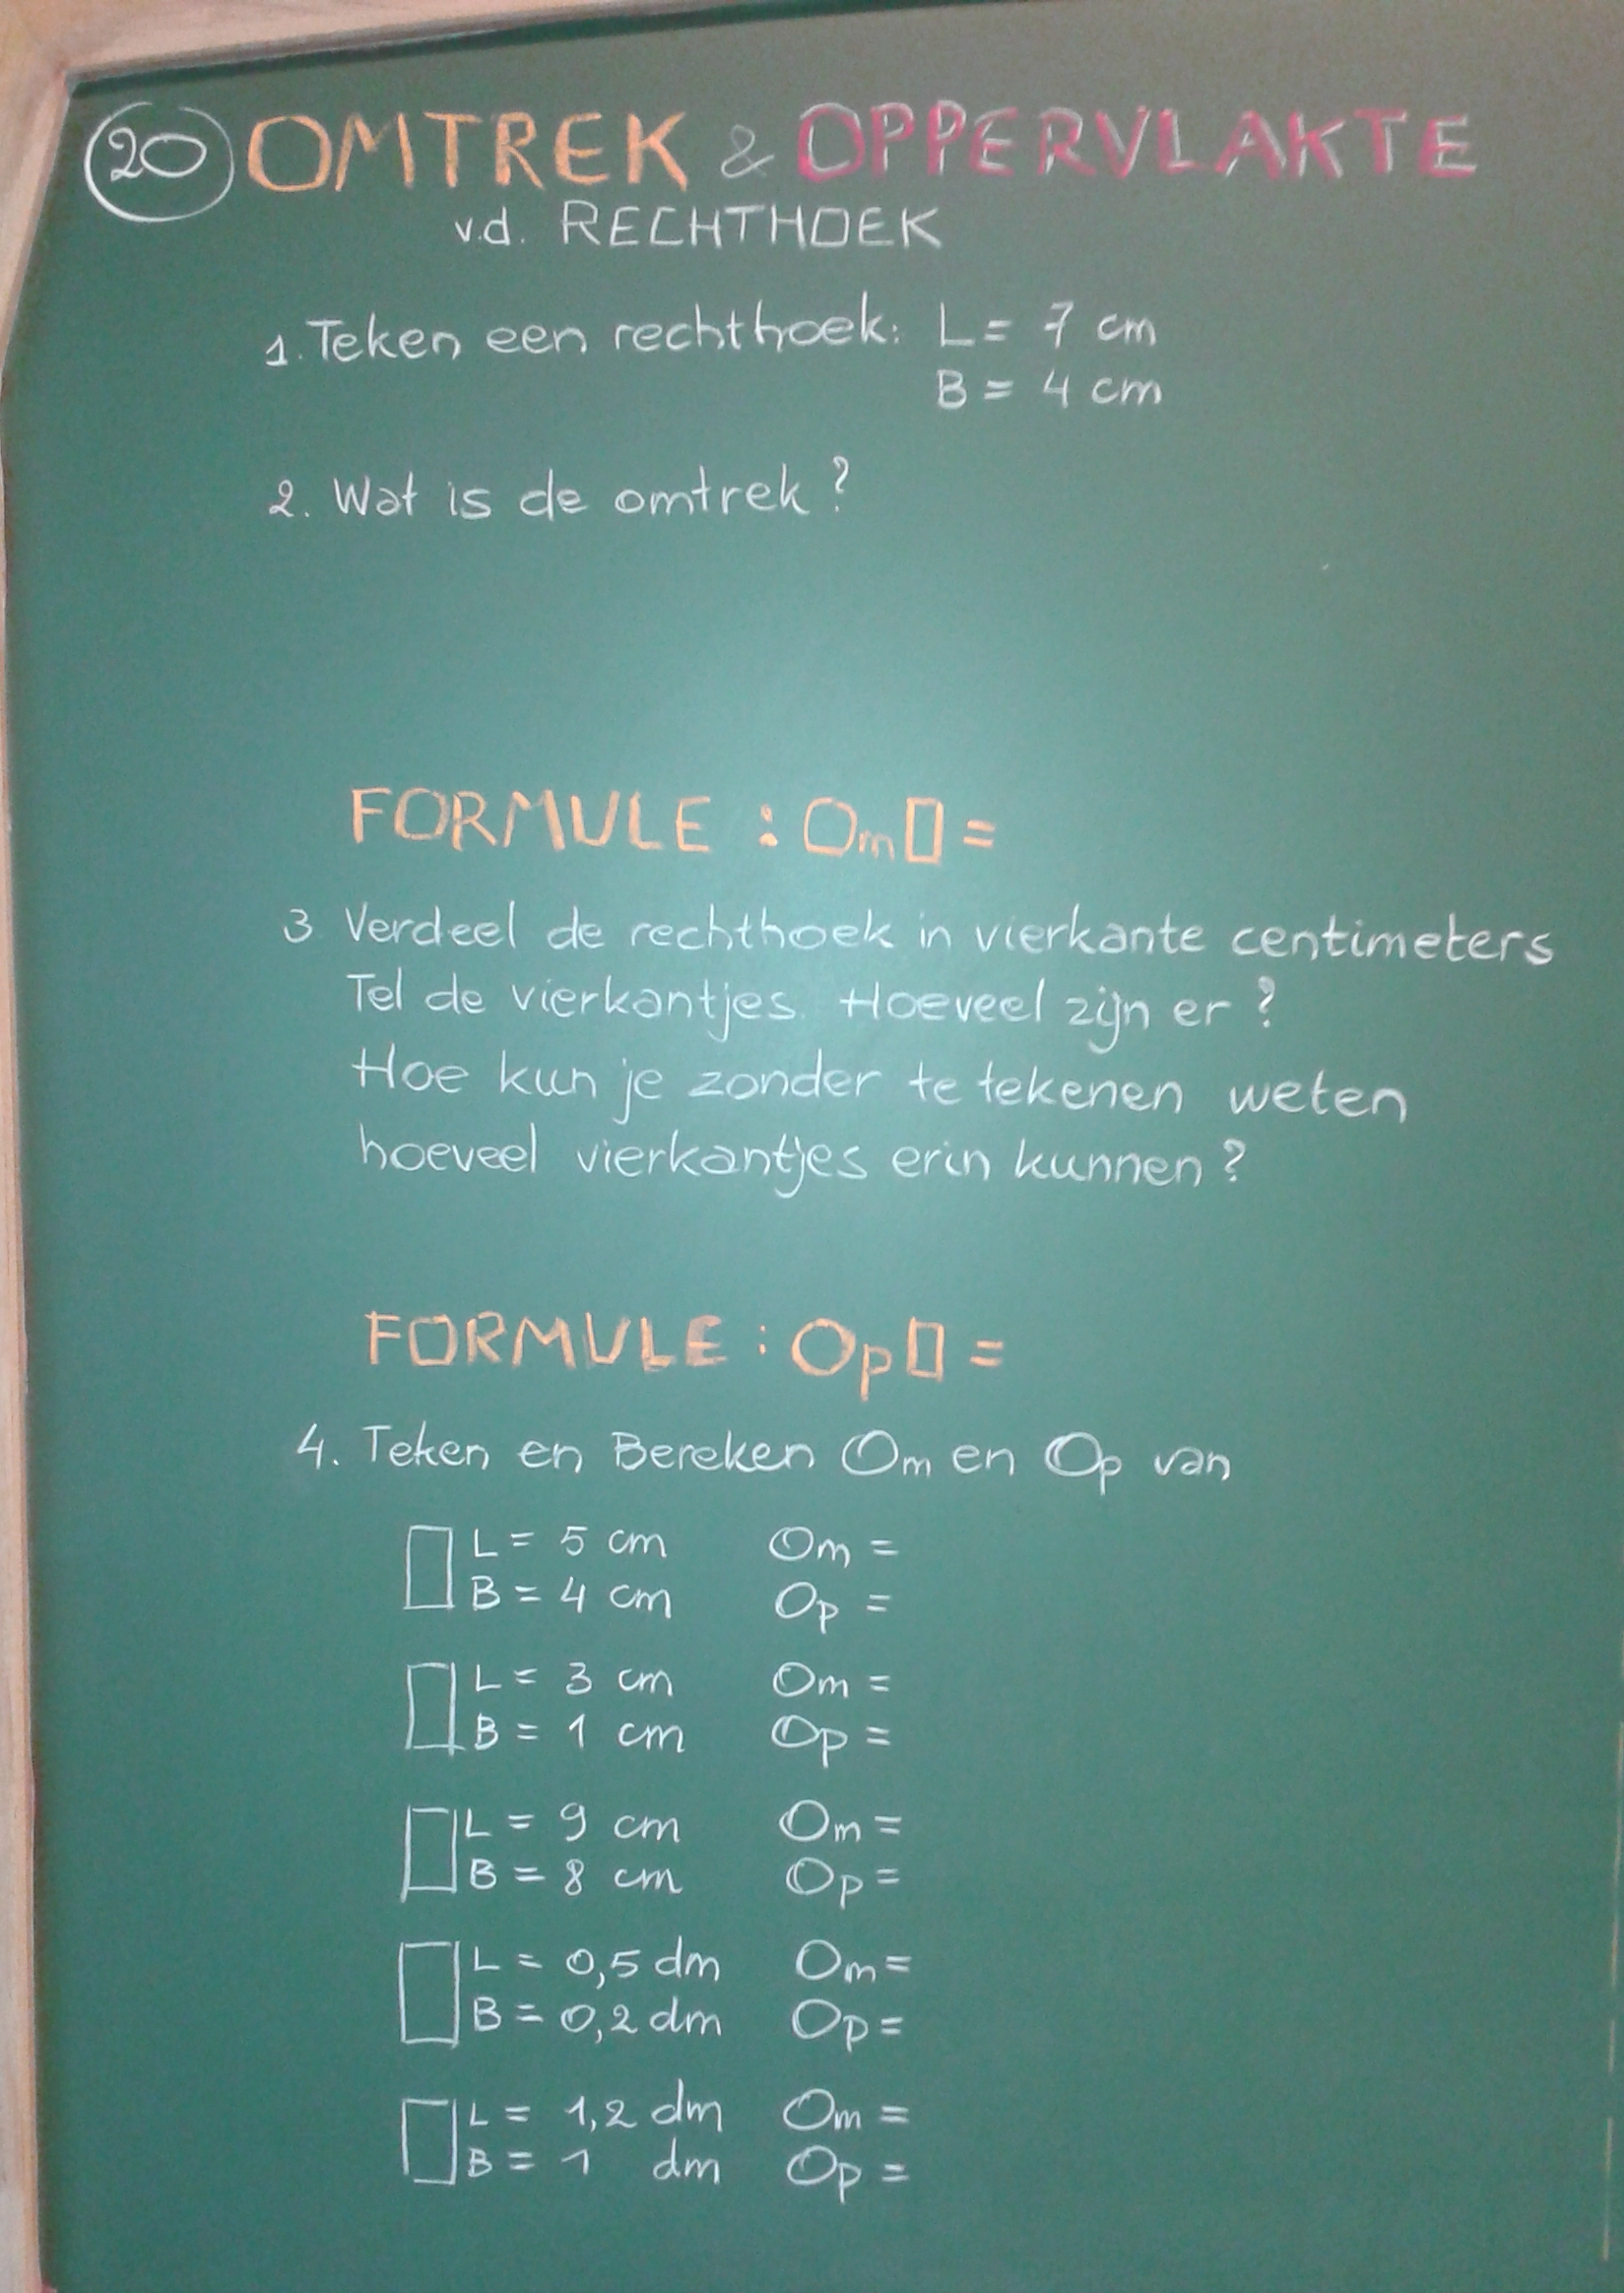 20 OMTREK & OPPERVLAKTE
v.d. RECHTHOEK
1. Teken een rechthoek: L = 7 cm
B = 4 cm
2. Wat is de omtrek?
FORMULE : Om▯ =
3 Verdeel de rechthoek in vierkante centimeters
Tel de vierkantjes. Hoeveel zijn er ?
Hoe kun je zonder te tekenen weten
hoeveel vierkantjes erin kunnen ?
FORMULE : Op▯ =
4. Teken en Bereken Om en Op van
L = 5 cm Om =
B = 4 cm Op =
L = 3 cm Om =
B = 1 cm Op =
L = 9 cm Om =
B = 8 cm Op =
L = 0,5 dm Om =
B = 0,2 dm Op =
L = 1,2 dm Om =
B = 1 dm Op =